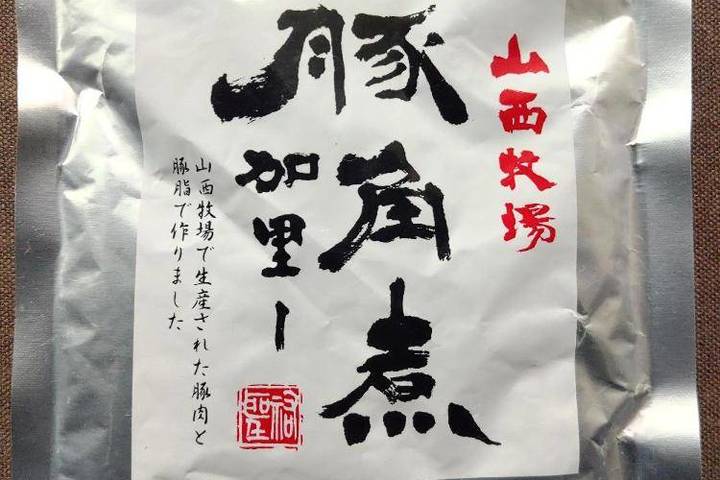 山西牧場
豚角煮
加里ー
山西牧場で生産された豚肉と
豚脂で作りました